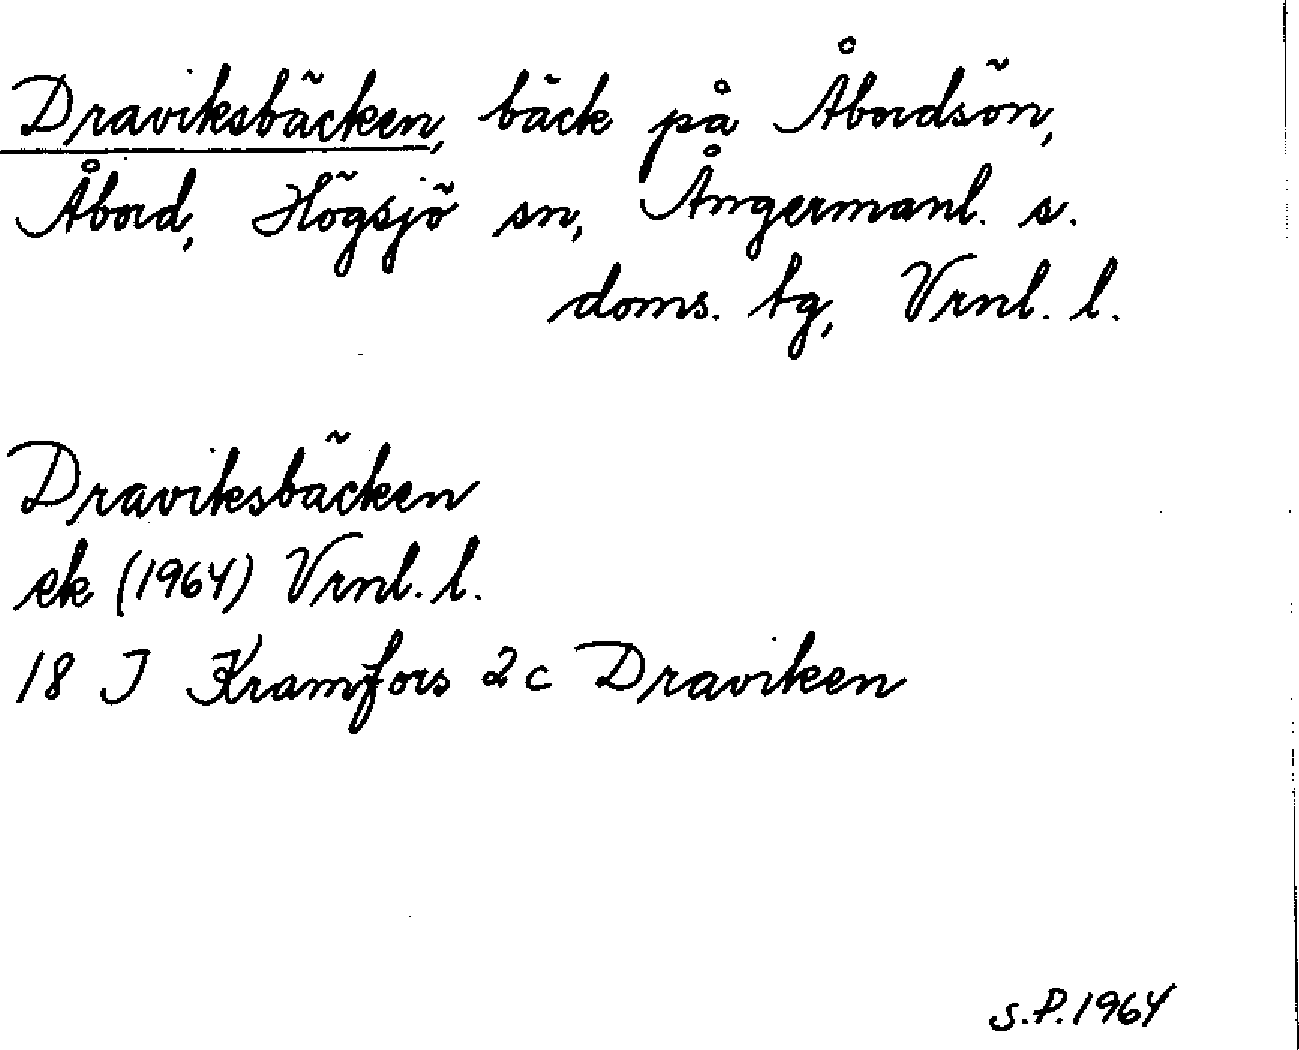 Draviksbäcken, bäck på Åbordsön,
Åbord, Högsjö sn, Ångermanl. s.
doms. tg, Vrnl. l.
Draviksbäcken
ek (1964) Vrnl. l.
18 I Kramfors 2c Draviken
S.P. 1964